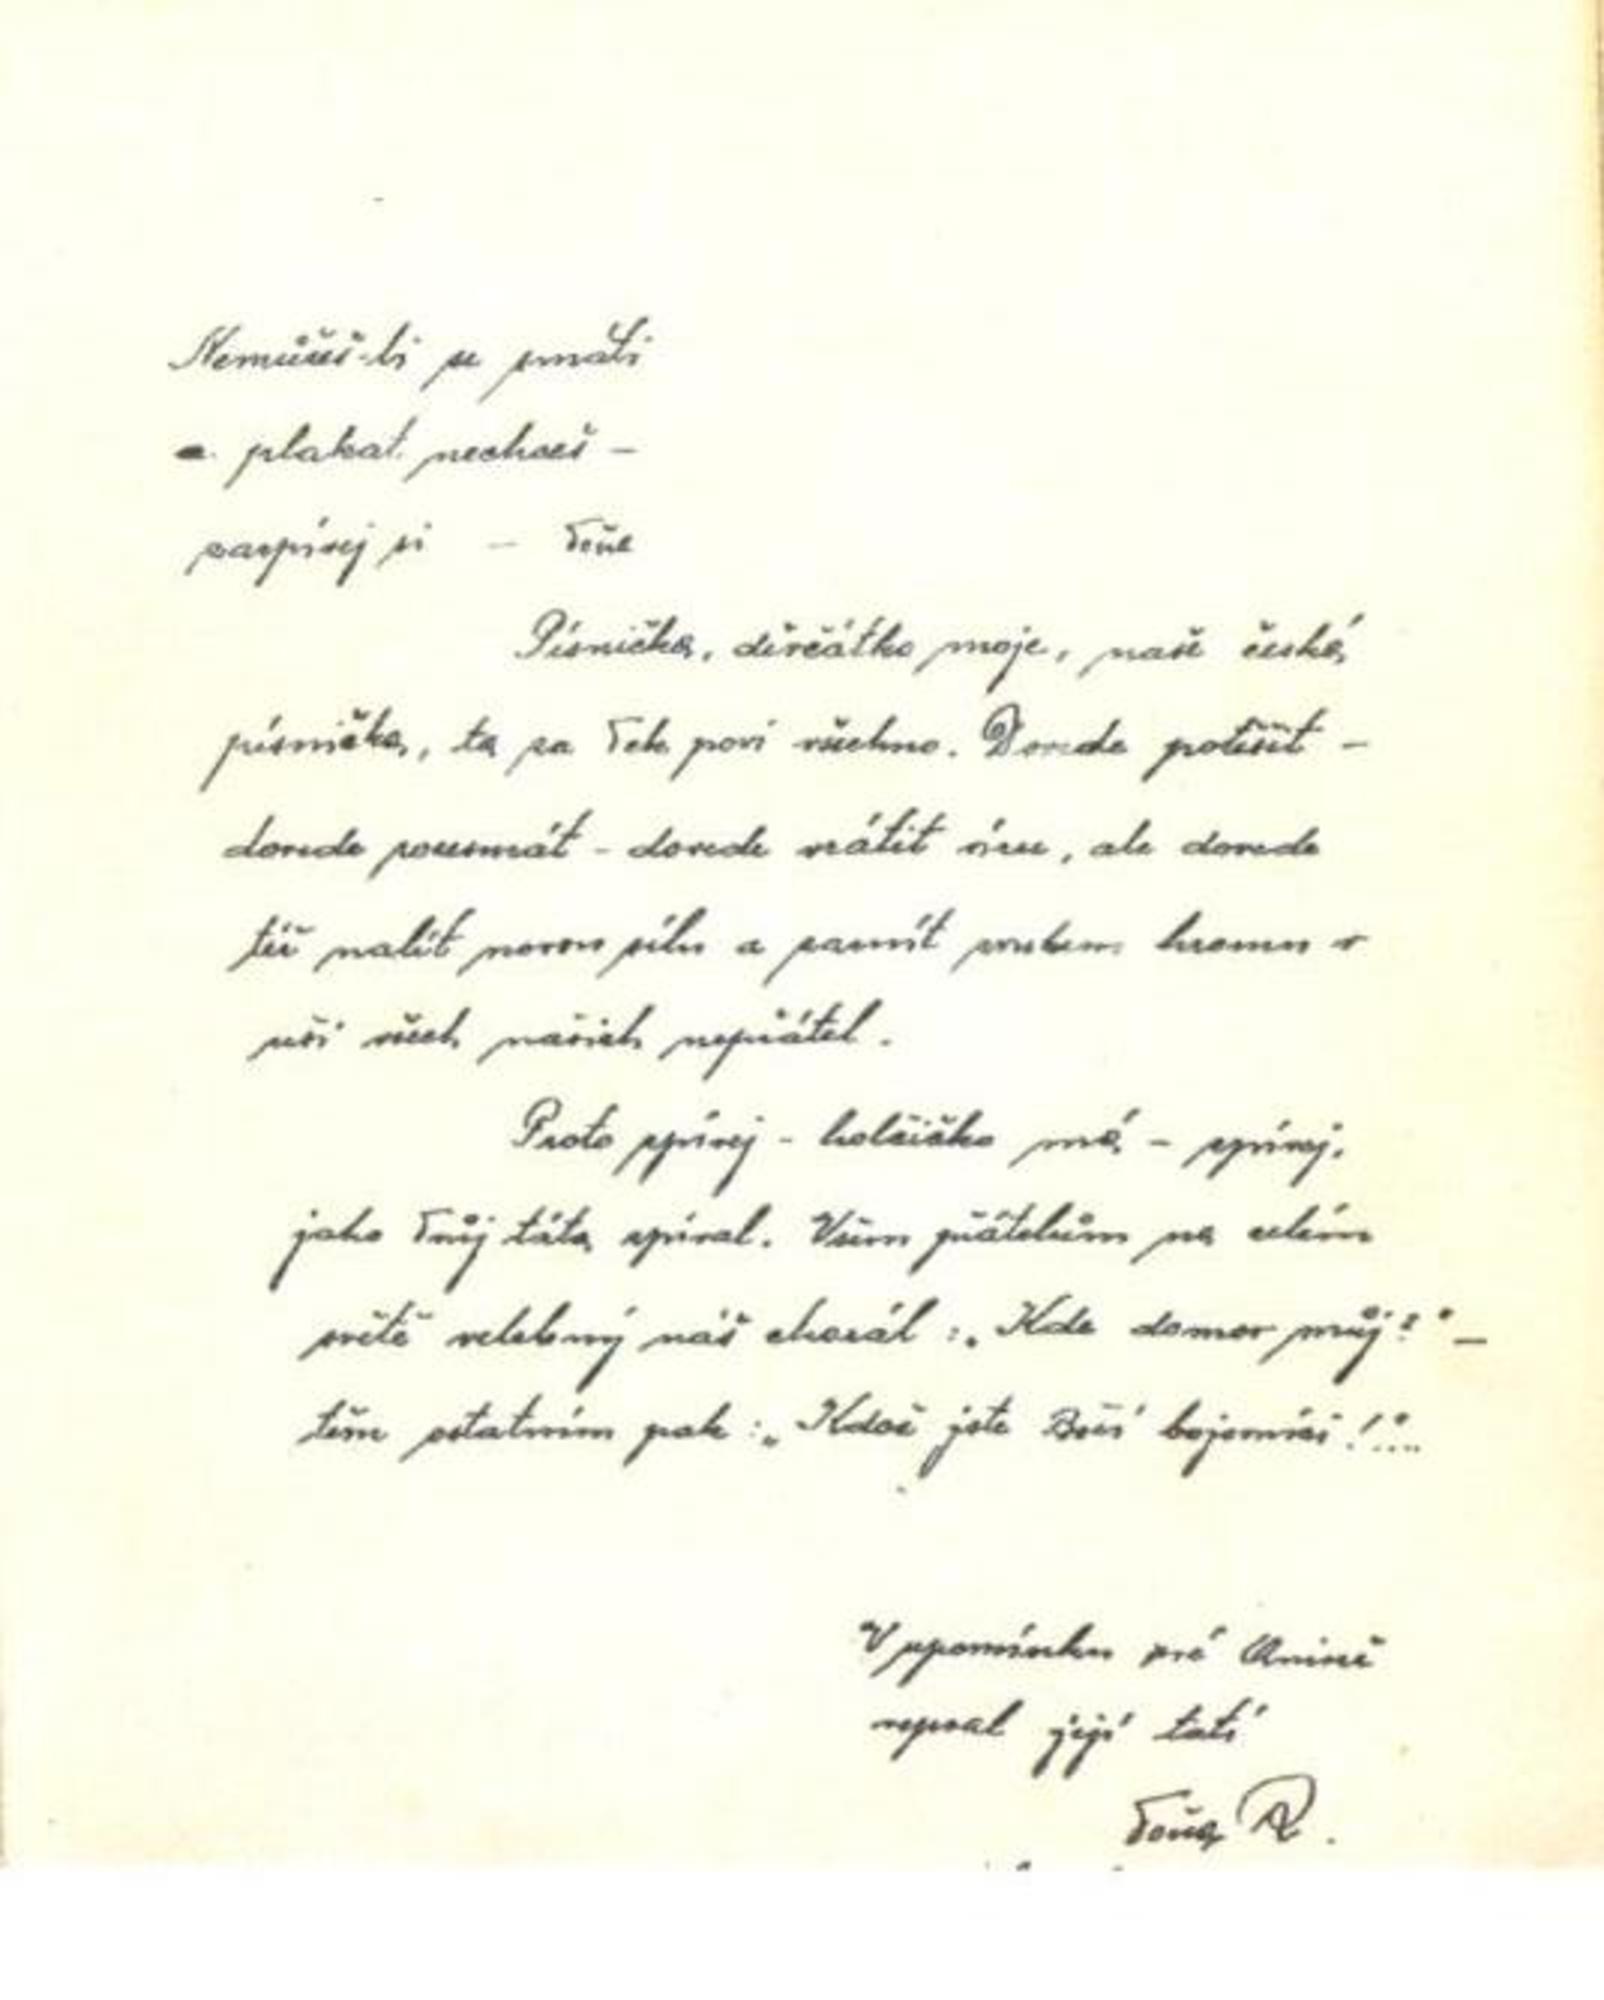 Nemůžeš-li se smáti
a plakat nechceš –
zazpívej si – Toňa
Písnička, děvčátko moje, naše česká
písnička, ta za Tebe poví všechno. Dovede potěšit –
dovede rozesmát – dovede vrátit víru, ale dovede
též nalít novou sílu a zaznít zvukem hromu v
uši všech našich nepřátel.
Proto zpívej – holčičko má – zpívej,
jako Tvůj táta zpíval. Všem přátelům na celém
světě velebný náš chorál: „Kde domov můj?" –
těm ostatním pak: „Kdož jste Boží bojovníci!"...
V upomínku své Anince
vepsal její tatí
Toňa R.